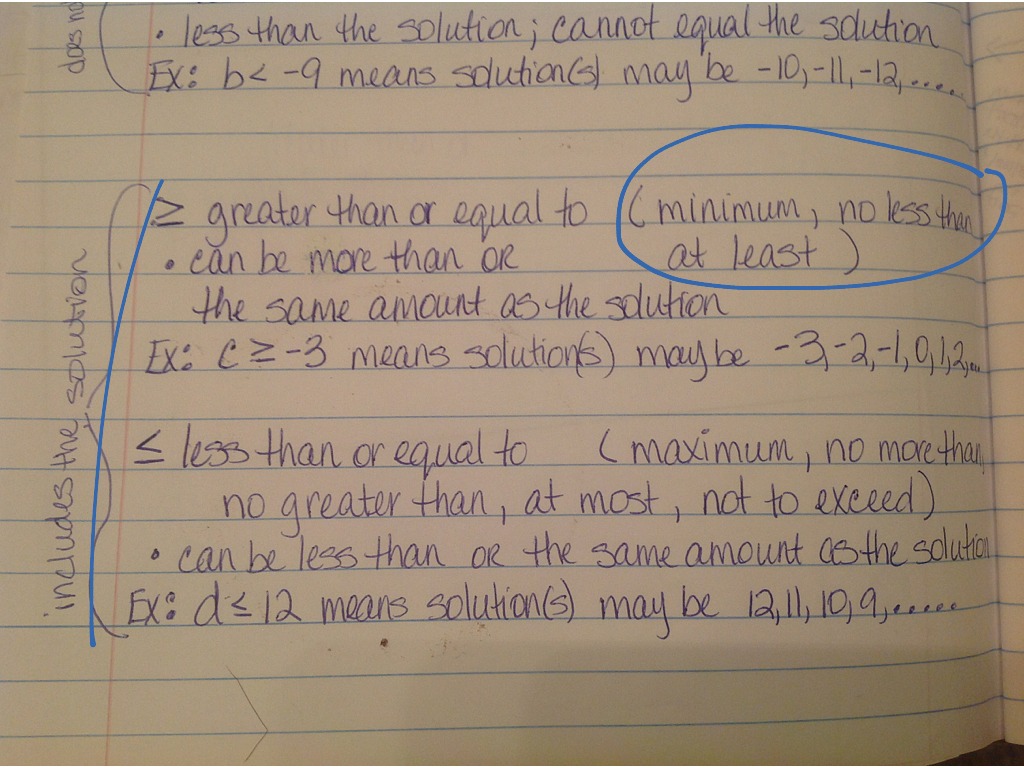 does no
• less than the solution; cannot equal the solution
Ex: b < -9 means solution(s) may be -10, -11, -12, .....
includes the solution
≥ greater than or equal to (minimum, no less than
at least)
• can be more than OR
the same amount as the solution
Ex: c ≥ -3 means solution(s) may be -3, -2, -1, 0, 1, 2, ...
≤ less than or equal to (maximum, no more than
no greater than, at most, not to exceed)
• can be less than or the same amount as the solution
Ex: d ≤ 12 means solution(s) may be 12, 11, 10, 9, .....